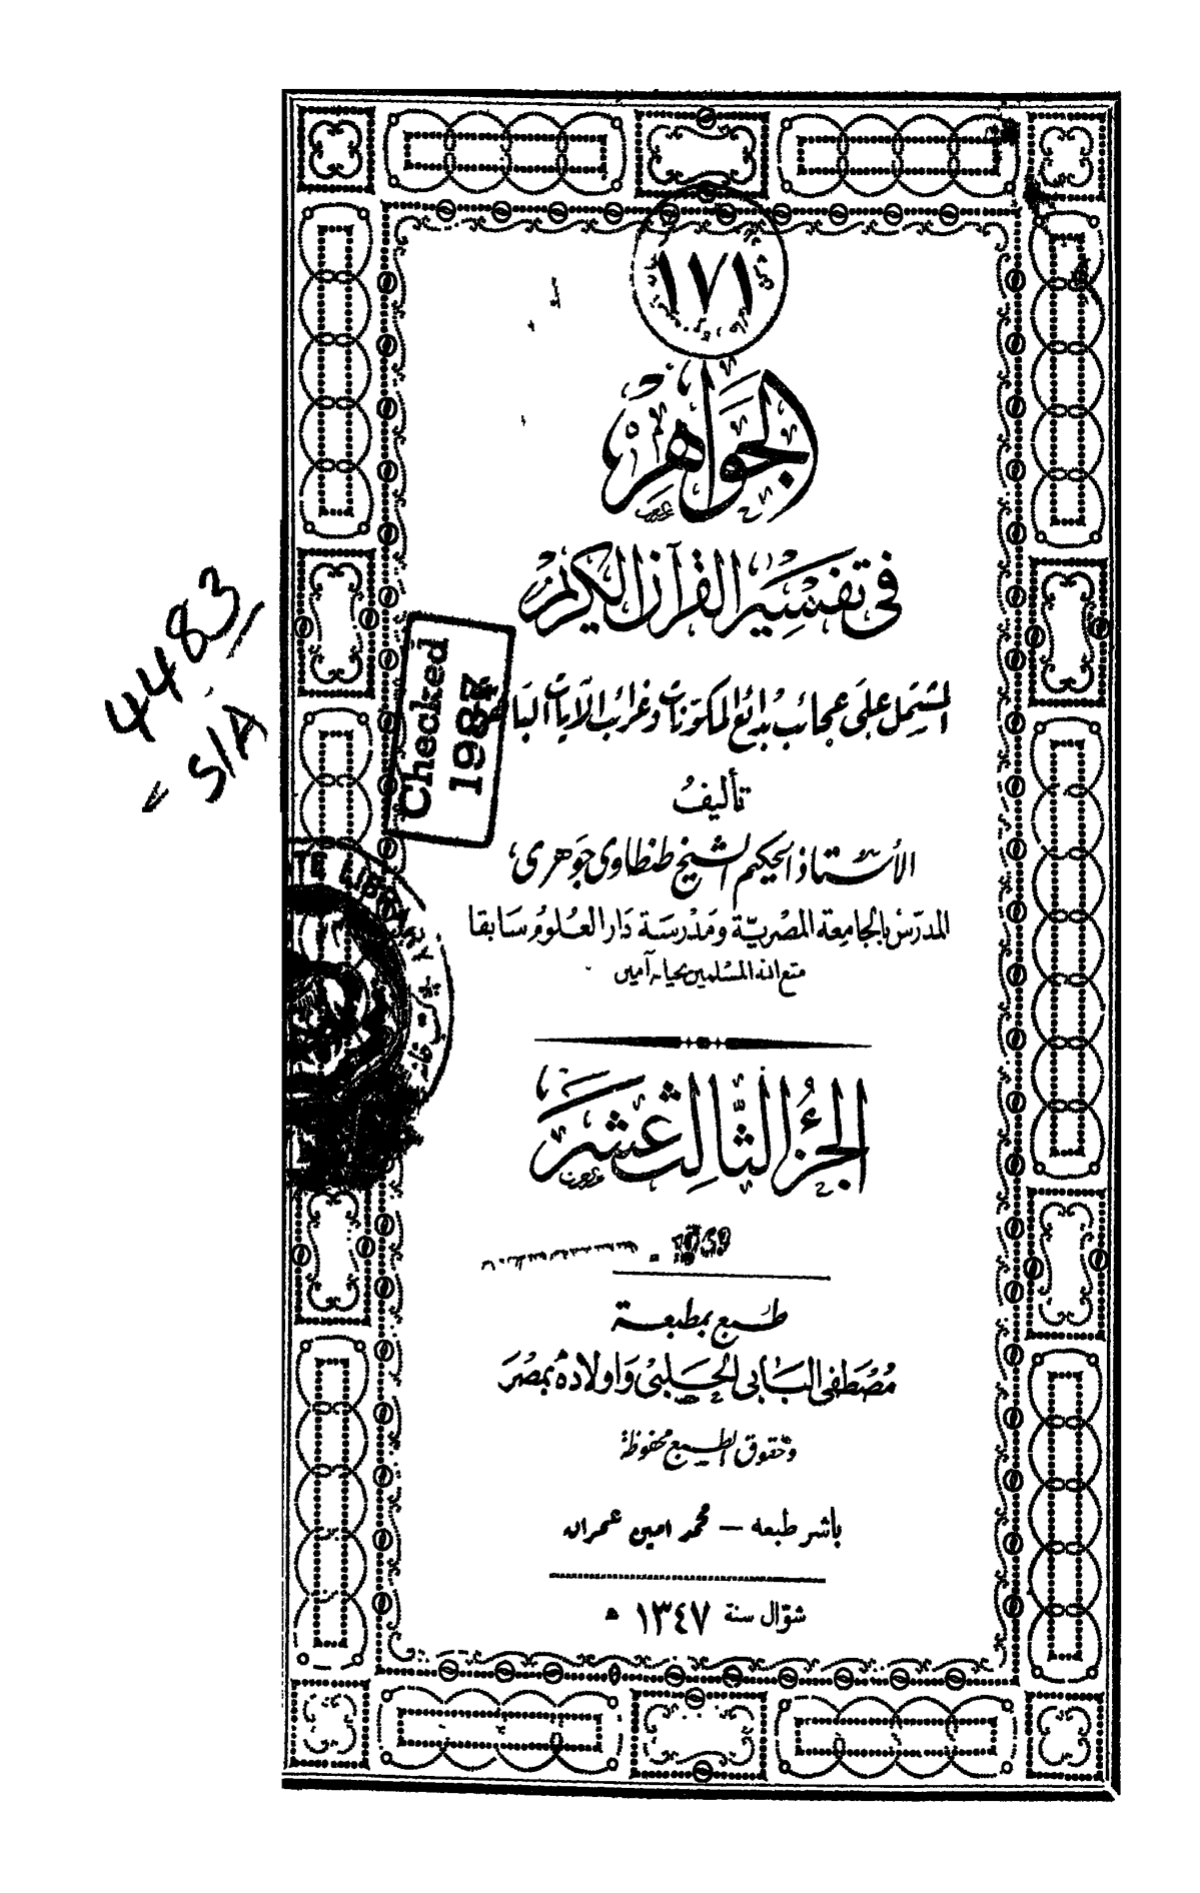 ١٧١
الجواهر
في تفسير القرآن الكريم
المشتمل على عجائب بدائع المكونات وغرائب الآيات
تأليف
الأستاذ الحكيم الشيخ طنطاوى جوهرى
المدرس بالجامعة المصرية ومدرسة دار العلوم سابقا
متع الله المسلمين بحياته آمين
الجزء الثالث عشر
طبع بمطبعة
مصطفى البابى الحلبى وأولاده بمصر
وحقوق الطبع محفوظة
باشر طبعه — محمد أمين عمران
شوّال سنة ١٣٤٧ ه
4483
S/A
Checked
1987